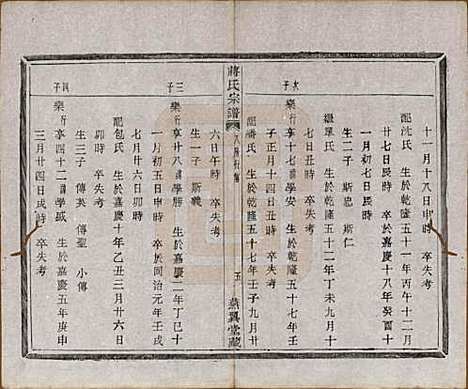 十一月十八日申時 卒失考
配沈氏 生於乾隆五十一年丙午十二月
廿七日辰時 卒於嘉慶十八年癸酉十
一月初七日辰時
生二子 斯忠 斯仁
繼單氏 生於乾隆五十二年丁未九月十
七日丑時 卒失考
次子
樂行享七 諱學安 生於乾隆五十七年壬
子正月十四日丑時 卒失考
配 氏 生於乾隆五十七年壬子九月廿
蔣氏宗譜
五
燕翼堂藏
六日午時 卒失考
生一子 斯義
三子
樂行享廿八 諱學勝 生於嘉慶二年丁巳十
一月初五日亥時 卒於同治元年壬戌
七月廿六日卯時
配包氏 生於嘉慶十年乙丑三月廿六日
卯時 卒失考
生三子 傳英 傳聖 小傳
四子
樂行享四十二 諱學威 生於嘉慶五年庚申
三月廿四日戌時 卒失考